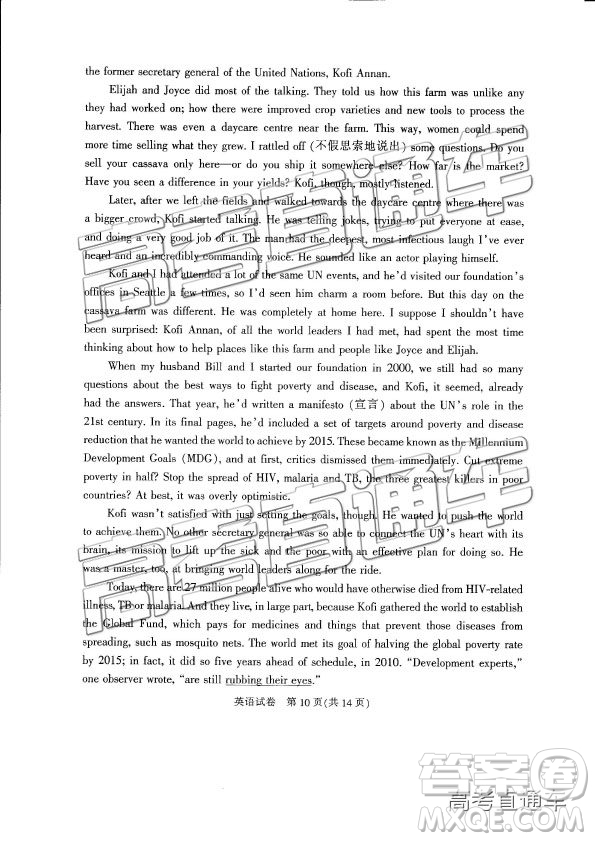 the former secretary general of the United Nations, Kofi Annan.
Elijah and Joyce did most of the talking. They told us how this farm was unlike any
they had worked on; how there were improved crop varieties and new tools to process the
harvest. There was even a daycare centre near the farm. This way, women could spend
more time selling what they grew. I rattled off (不假思索地说出) some questions. Do you
sell your cassava only here—or do you ship it somewhere else? How far is the market?
Have you seen a difference in your yields? Kofi, though, mostly listened.
Later, after we left the fields and walked towards the daycare centre where there was
a bigger crowd, Kofi started talking. He was telling jokes, trying to put everyone at ease,
and doing a very good job of it. The man had the deepest, most infectious laugh I've ever
heard and an incredibly commanding voice. He sounded like an actor playing himself.
Kofi and I had attended a lot of the same UN events, and he'd visited our foundation's
offices in Seattle a few times, so I'd seen him charm a room before. But this day on the
cassava farm was different. He was completely at home here. I suppose I shouldn't have
been surprised: Kofi Annan, of all the world leaders I had met, had spent the most time
thinking about how to help places like this farm and people like Joyce and Elijah.
When my husband Bill and I started our foundation in 2000, we still had so many
questions about the best ways to fight poverty and disease, and Kofi, it seemed, already
had the answers. That year, he'd written a manifesto (宣言) about the UN's role in the
21st century. In its final pages, he'd included a set of targets around poverty and disease
reduction that he wanted the world to achieve by 2015. These became known as the Millennium
Development Goals (MDG), and at first, critics dismissed them immediately. Cut extreme
poverty in half? Stop the spread of HIV, malaria and TB, the three greatest killers in poor
countries? At best, it was overly optimistic.
Kofi wasn't satisfied with just setting the goals, though. He wanted to push the world
to achieve them. No other secretary general was so able to connect the UN's heart with its
brain, its mission to lift up the sick and the poor with an effective plan for doing so. He
was a master, too, at bringing world leaders along for the ride.
Today, there are 27 million people alive who would have otherwise died from HIV-related
illness, TB or malaria. And they live, in large part, because Kofi gathered the world to establish
the Global Fund, which pays for medicines and treatments that prevent those diseases from
spreading, such as mosquito nets. The world met its goal of halving the global poverty rate
by 2015; in fact, it did so five years ahead of schedule, in 2010. “Development experts,”
one observer wrote, “are still rubbing their eyes.”
英语试卷 第 10 页(共 14 页)
高考直通车
高考直通车
高考直通车
答案圈
MXQE.COM
高考直通车